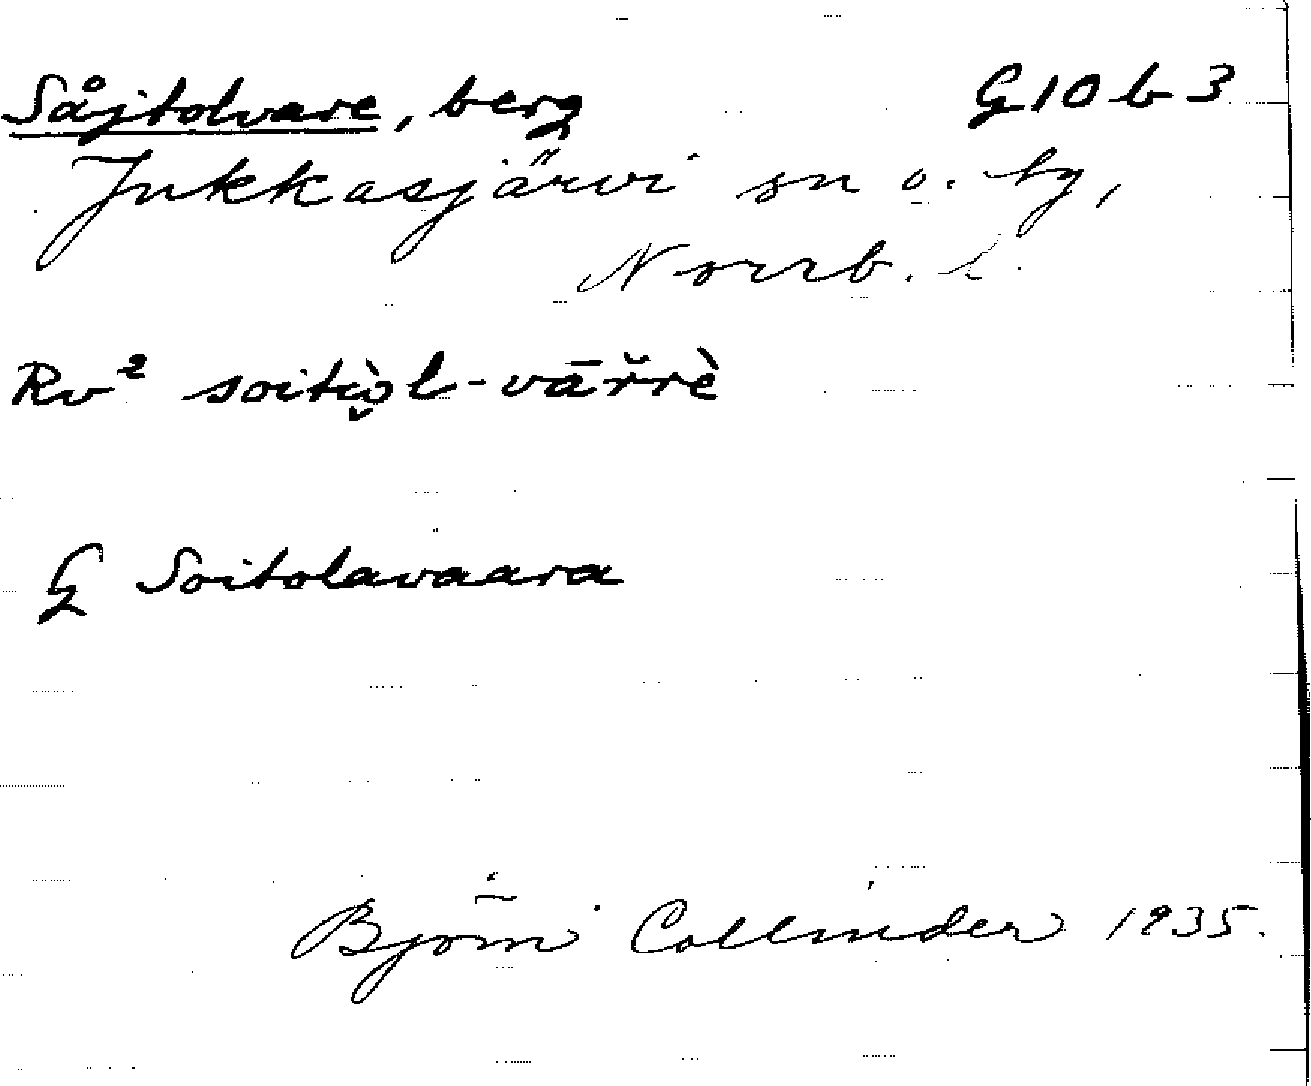 Såjtolvare, berg G10 b 3
Jukkasjärvi sn o. tg,
Norrb. l.
Rv² soitiò̭l-vār̆rè
G Soitolavaara
Björn Collinder 1935.